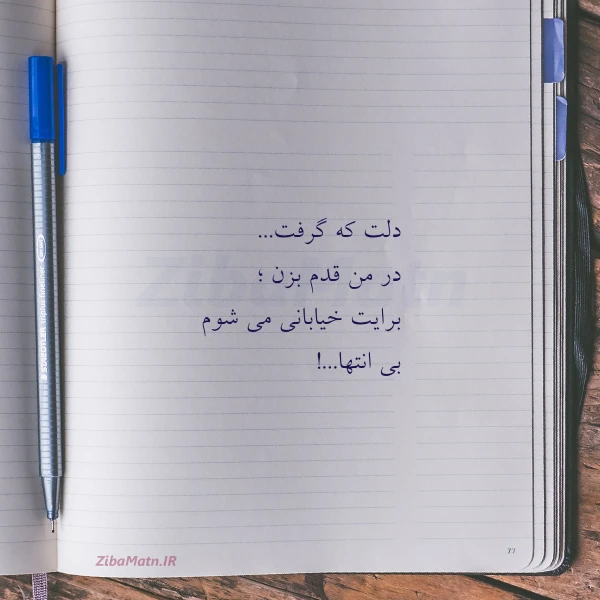 دلت که گرفت...
در من قدم بزن ؛
برایت خیابانی می شوم
بی انتها...!
ZibaMatn
ZibaMatn.IR
77